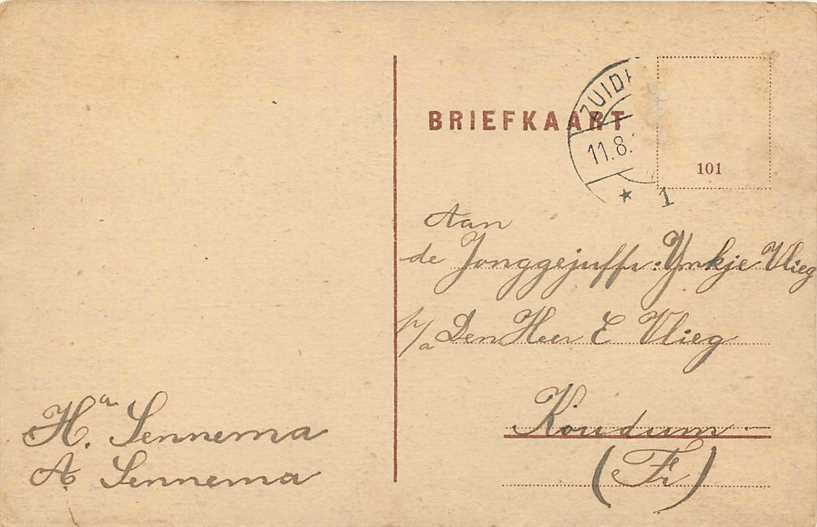 BRIEFKAART
11.8.
1
101
Aan
de Jonggejuffr: Ymkje Vlieg
p/a Den Heer E Vlieg
Koudum
(Fr)
Ha. Sennema
A. Sennema